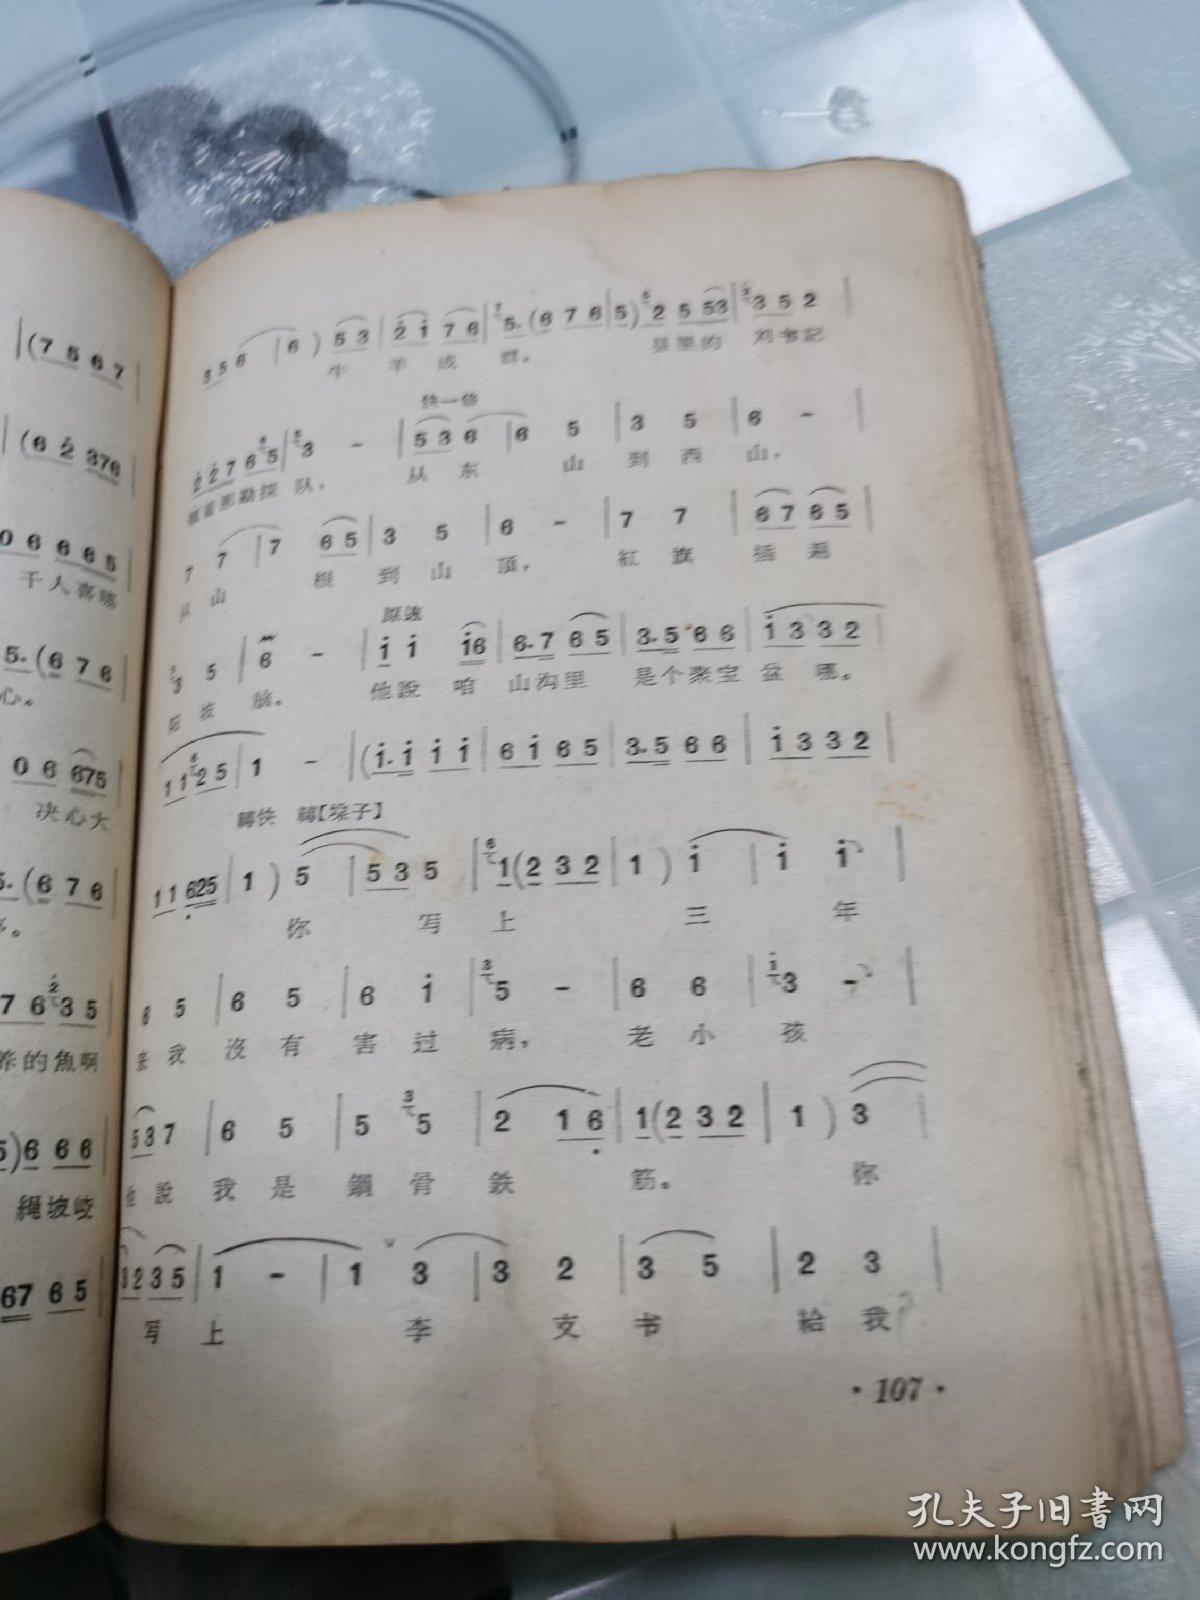 (7 5 6 7
(6 2 376
0 6 6 6 5
千人喜
5. (6 7 6
心。
0 6 675
决心大
5. (6 7 6
7 6 2 3 5
养的魚啊
5) 6 6 6
繩坡
67 6 5
3 5 6 | 6 ) 5 3 | 2 1 7 6 | 7 5. (6 7 6 | 5) 6 2 5 53 | 2 3 5 2 |
牛 羊 成 群。 县里的 刘书記
快一倍
2 2 7 6 6 5 | 5 3 - | 5 3 6 | 6 5 | 3 5 | 6 - |
領着那勘探队, 从东 山到西山,
7 7 | 7 6 5 | 3 5 | 6 - | 7 7 | 6 7 6 5 |
从山 根到山頂, 紅旗 插遍
原速
2 3 5 | 6 - | i i i6 | 6. 7 6 5 | 3. 5 6 6 | i 3 3 2 |
坡 脑。 他說 咱 山沟里 是个聚宝 盆 哪。
1 1 6 2 5 | 1 - | (i. i i i | 6 i 6 5 | 3. 5 6 6 | i 3 3 2 |
轉快 轉【垛子】
1 1 625 | 1 ) 5 | 5 3 5 | 6 1 (2 3 2 | 1 ) i | i i |
你 写 上 三 年
6 5 | 6 5 | 6 i | 3 5 - | 6 6 | i 3 - |
来我 沒有 害过 病, 老小孩
5 3 7 | 6 5 | 5 3 5 | 2 1 6 | 1 (2 3 2 | 1 ) 3 |
說 我是 鋼骨 鉄 筋。 你
3 2 3 5 | 1 - | 1 3 | 3 2 | 3 5 | 2 3 |
写 上 李 支 书 給我
· 107 ·
孔夫子旧书网
www.kongfz.com